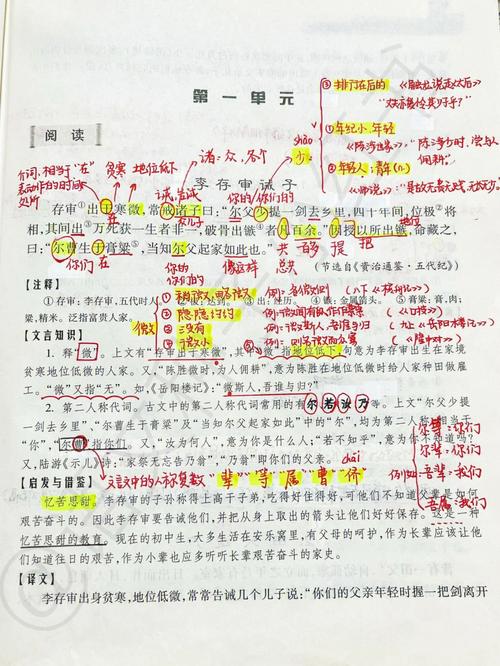 第一单元
阅读
③ 排行在后的
② 年纪小.年轻
③ 年轻人;青年(n.)
shào
少
诸:众,各个
介词,相当于"在"
表动作的时间或
处所
贫寒 地位低下
诫,告诫
你们的
李存审诫子
存审出于寒微,常戒诸子曰:“尔父少提一剑去乡里,四十年间,位极将
相,其间出万死获一生者非一,破骨出镞者凡百余。”因授以所出镞,命藏之,
曰:“尔曹生于膏粱,当知尔父起家如此也。”
你们
在
你的
你们的
像这样
总共
(节选自《资治通鉴·五代纪》)
【注释】
① 存审:李存审,五代时人
⑤ 膏粱:膏,肉;
粱,精米。泛指富贵人家。
微
① 稍微,略微
② 隐隐约约
③ 没有
④ 微小
【文言知识】
1. 释“微”。上文有“存审出于寒微”,其中“微”指地位低下,句意为李存审出生在家境
贫寒地位低微的人家。又,“陈胜微时,为人佣耕”,意为陈胜在地位低微时给人家种田做雇
工。“微”又指“无”。如《岳阳楼记》:“微斯人,吾谁与归?”
2. 第二人称代词。古文中的第二人称代词常用的有尔若汝乃等。上文“尔父少提
一剑”,“尔曹生于膏粱”及“当知尔父起家如此也”中的“尔”,均为第二人称,相当于
“你”,“尔曹”指你们。又,“汝为何人”,意为你是什么人;“若不知手”,意为你不知
又,陆游《示儿》诗:“家祭无忘告乃翁”,“乃翁”即你们的父亲。
文言文中的人称复数
辈 等 属 曹 侪
chái
例如
尔等:你们
尔辈:你们
吾辈:我们
吾属:我们
【启发与借鉴】
忆苦思甜。李存审的子孙称得上高干子弟,吃得好住得好,可他们不知道父辈是如何
艰苦奋斗的。因此李存审要告诫他们,并把从身上取出的箭头让他们好好保存。这是一种
忆苦思甜的教育。现在的初中生,大多生活在安乐窝里,有父母的呵护,作为长辈应该让他
们知道往日的艰苦,作为小辈也应多听听长辈艰苦奋斗的家史。
【译文】
李存审出身贫寒,地位低微,常常告诫几个儿子说:“你们的父亲年轻时握一把剑离开